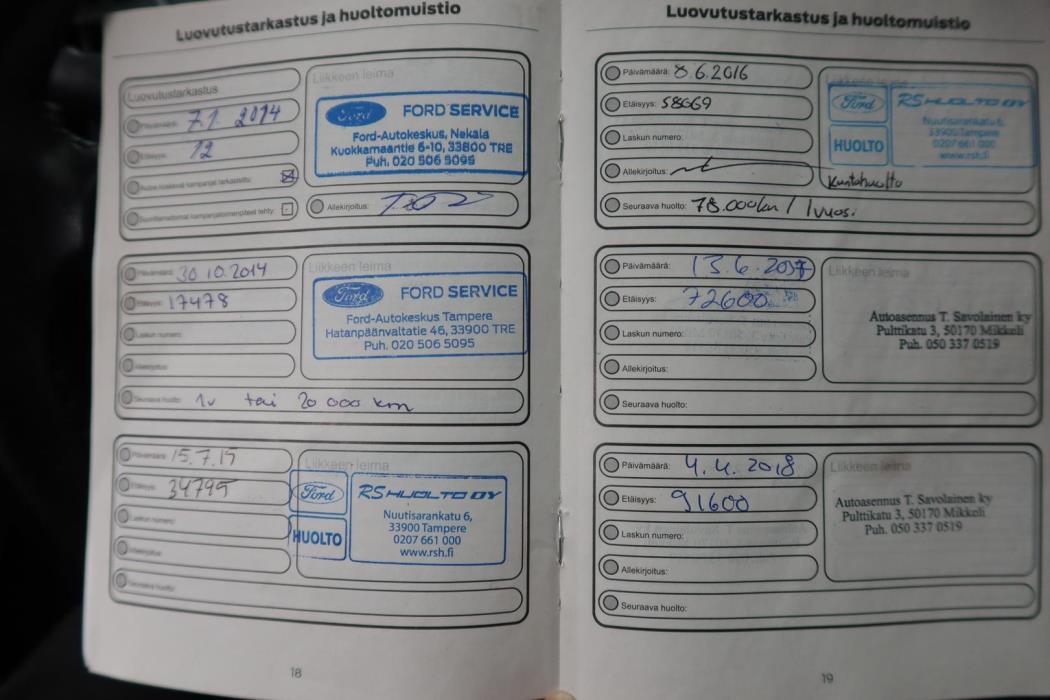 Luovutustarkastus ja huoltomuistio
Luovutustarkastus
Liikkeen leima
Päivämäärä: 7.1. 2014
Ford FORD SERVICE
Ford-Autokeskus, Nekala
Kuokkamaantie 6-10, 33800 TRE
Puh. 020 506 5095
Etäisyys: 12
Allekirjoitus:
Päivämäärä: 30.10.2014
Liikkeen leima
Etäisyys: 17478
Ford FORD SERVICE
Ford-Autokeskus Tampere
Hatanpäänvaltatie 46, 33900 TRE
Puh. 020 506 5095
Laskun numero:
Allekirjoitus:
Seuraava huolto: 1v tai 20 000 km
Päivämäärä: 15.7.15
Liikkeen leima
Etäisyys: 34795
Ford RS HUOLTO OY
HUOLTO
Nuutisarankatu 6,
33900 Tampere
0207 661 000
www.rsh.fi
Laskun numero:
Allekirjoitus:
Seuraava huolto:
18
Luovutustarkastus ja huoltomuistio
Päivämäärä: 8.6.2016
Liikkeen leima
Etäisyys: 58669
Ford RS HUOLTO OY
HUOLTO
Nuutisarankatu 6,
33900 Tampere
0207 661 000
www.rsh.fi
Laskun numero:
Allekirjoitus:
Kuntohuolto
Seuraava huolto: 78.000km / 1 vuosi.
Päivämäärä: 13.6.2017
Liikkeen leima
Etäisyys: 72600
Autoasennus T. Savolainen ky
Pulttikatu 3, 50170 Mikkeli
Puh. 050 337 0519
Laskun numero:
Allekirjoitus:
Seuraava huolto:
Päivämäärä: 4.4.2018
Liikkeen leima
Etäisyys: 91600
Autoasennus T. Savolainen ky
Pulttikatu 3, 50170 Mikkeli
Puh. 050 337 0519
Laskun numero:
Allekirjoitus:
Seuraava huolto:
19